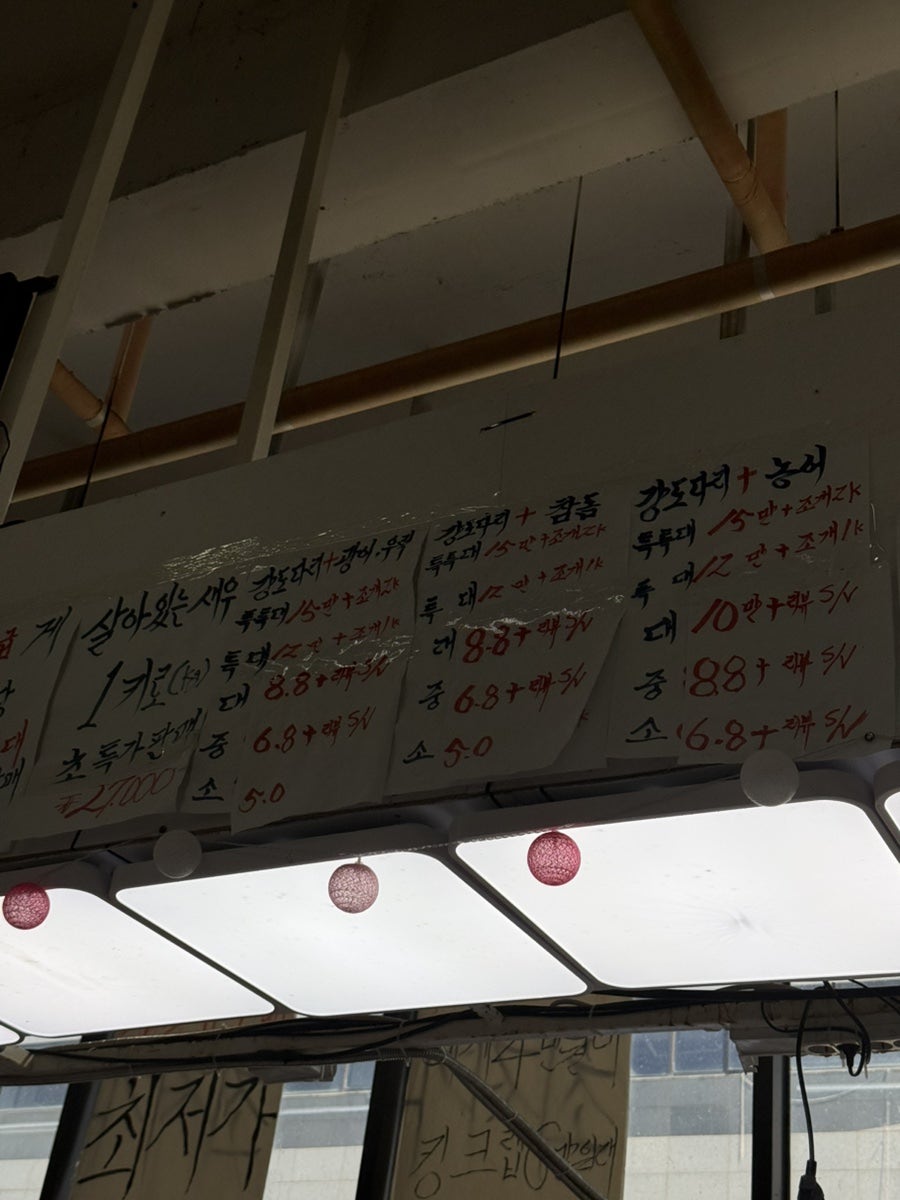 게
살아있는 새우
1키로(kg)
초특가판매
₩27,000
강도다리+광어.우럭
특특대 15만+조개2k
특대 12만+조개1k
대 8.8+리뷰 S/V
중 6.8+리뷰 S/V
소 5.0
강도다리+참돔
특특대 15만+조개2k
특대 12만+조개1k
대 8.8+리뷰 S/V
중 6.8+리뷰 S/V
소 5.0
강도다리+농어
특특대 15만+조개2k
특대 12만+조개1k
대 10만+리뷰 S/V
중 88+리뷰 S/V
소 6.8+리뷰 S/V
최저가
킹크랩